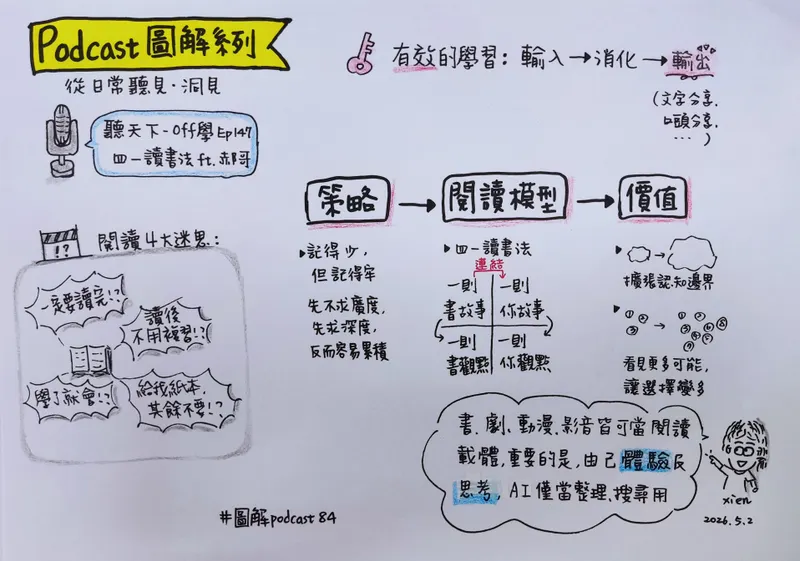 Podcast 圖解系列
從日常聽見·洞見
聽天下-off學Ep147
四一讀書法 ft.郝哥
有效的學習：輸入→消化→輸出
(文字分享、
口頭分享、
……)
閱讀4大迷思：
!?
一定要讀完!?
讀後
不用複習!?
學了就會!?
給我紙本，
其餘不要!?
策略→閱讀模型→價值
▸記得少，
但記得牢
先不求廣度，
先求深度，
反而容易累積
▸四一讀書法
連結
一則
書故事
一則
你故事
一則
書觀點
一則
你觀點
▸
擴張認知邊界
▸
①②③→①②③④⑤⑥⑦⑧
看見更多可能，
讓選擇變多
書、劇、動漫、影音皆可當閱讀
載體，重要的是，由己體驗反
思考，AI僅當整理、搜尋用
xien
2026.5.2
#圖解podcast 84